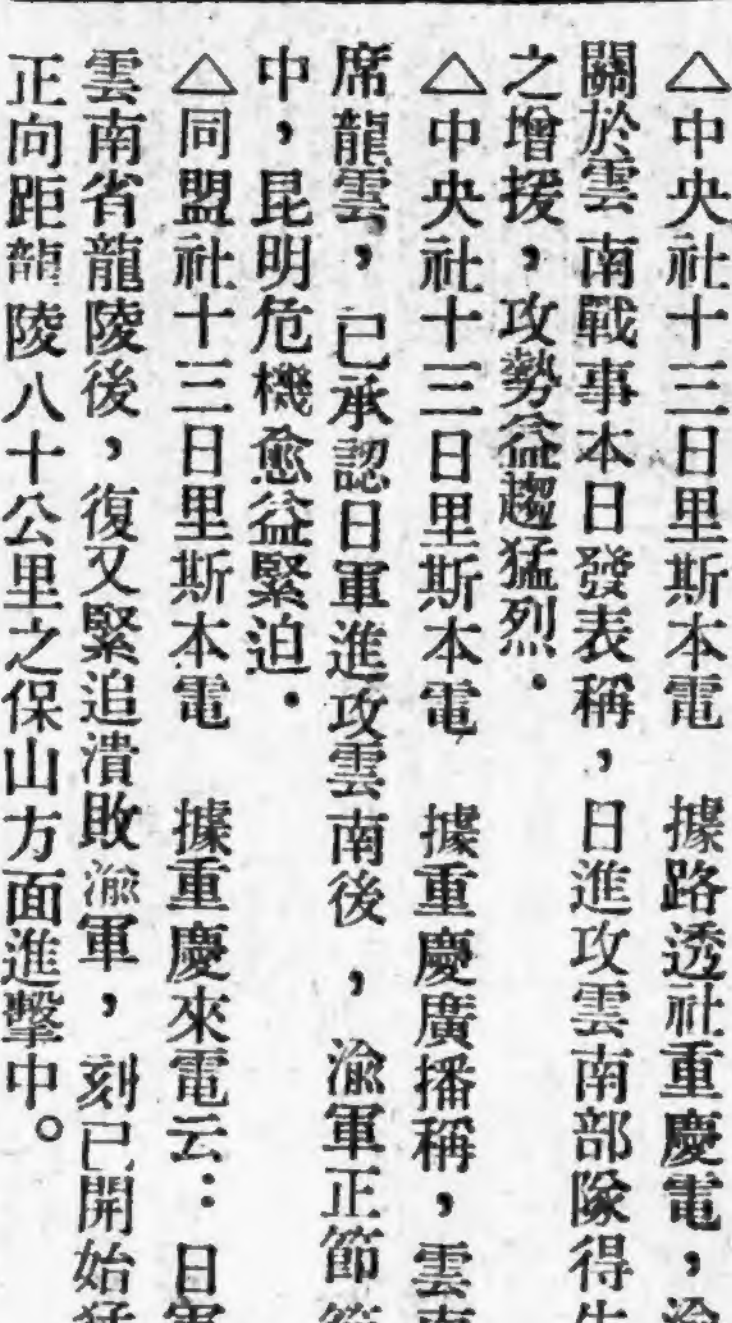 △中央社十三日里斯本電　據路透社重慶電，渝
關於雲南戰事本日發表稱，日進攻雲南部隊得
之增援，攻勢益趨猛烈．
△中央社十三日里斯本電　據重慶廣播稱，雲南
席龍雲，已承認日軍進攻雲南後，渝軍正節節
中，昆明危機愈益緊迫．
△同盟社十三日里斯本電　據重慶來電云：日軍
雲南省龍陵後，復又緊追潰敗渝軍，刻已開始猛
正向距龍陵八十公里之保山方面進擊中。